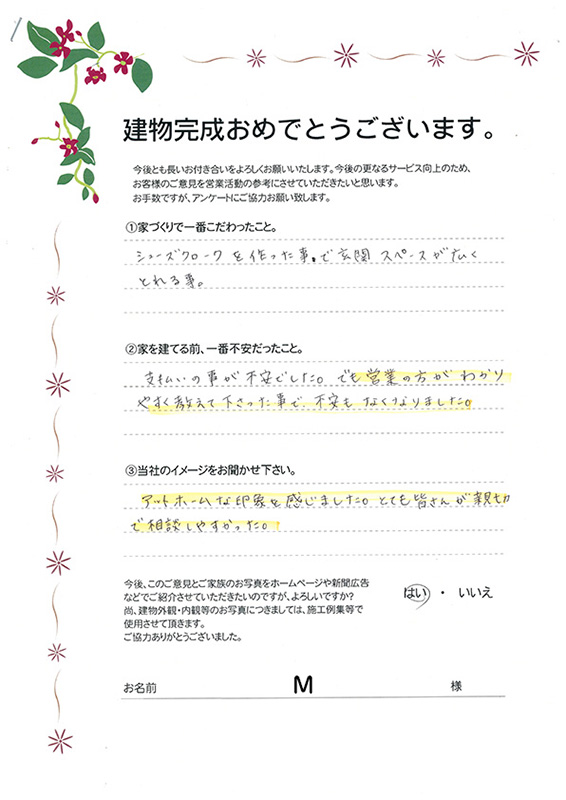 建物完成おめでとうございます。
今後とも長いお付き合いをよろしくお願いいたします。今後の更なるサービス向上のため、
お客様のご意見を営業活動の参考にさせていただきたいと思います。
お手数ですが、アンケートにご協力お願い致します。
①家づくりで一番こだわったこと。
シューズクロークを作った事。で玄関スペースが広く
とれる事。
②家を建てる前、一番不安だったこと。
支払いの事が不安でした。でも営業の方がわかり
やすく教えて下さった事で、不安もなくなりました。
③当社のイメージをお聞かせ下さい。
アットホームな印象を感じました。とても皆さんが親切
で相談しやすかった。
今後、このご意見とご家族のお写真をホームページや新聞広告
などでご紹介させていただきたいのですが、よろしいですか?
はい ・ いいえ
尚、建物外観・内観等のお写真につきましては、施工例集等で
使用させて頂きます。
ご協力ありがとうございました。
お名前 M 様